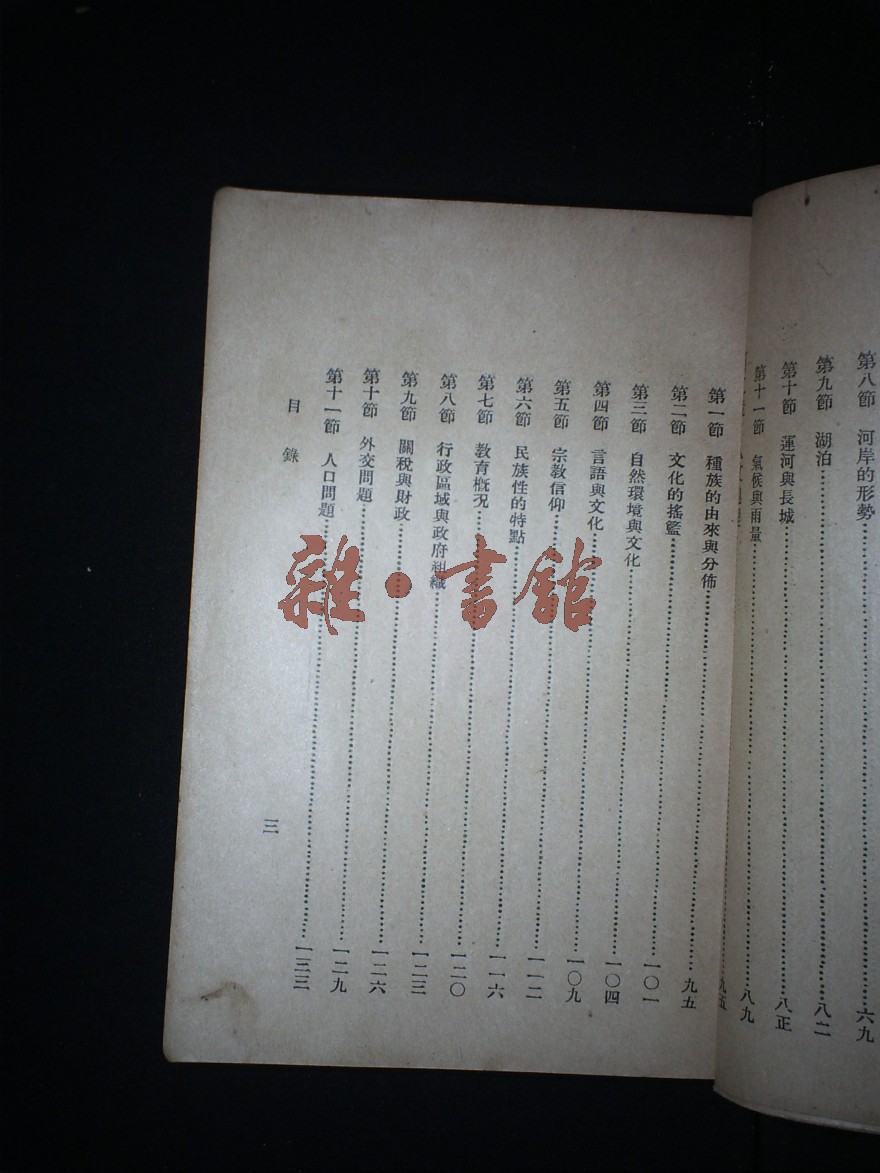 第八節 河岸的形勢……六九
第九節 湖泊……八二
第十節 運河與長城……八正
第十一節 氣候與雨量……八九
第一節 種族的由來與分佈……九五
第二節 文化的搖籃……一〇一
第三節 自然環境與文化……一〇四
第四節 言語與文化……一〇九
第五節 宗教信仰……一一二
第六節 民族性的特點……一一六
第七節 教育概況……一二〇
第八節 行政區域與政府組織……一二三
第九節 關稅與財政……一二六
第十節 外交問題……一二九
第十一節 人口問題……一三三
目錄
三
雜·書館